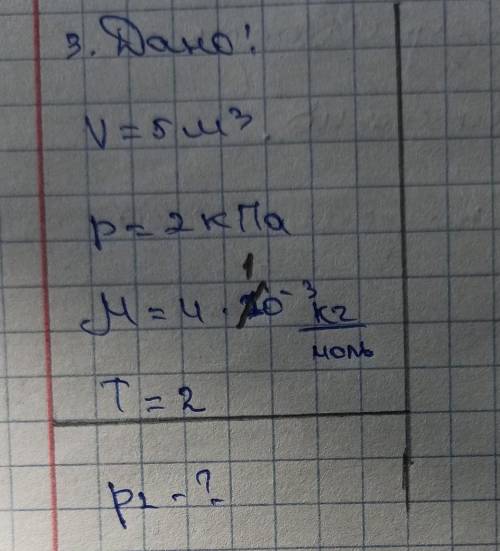 3. Дано:
V = 5 м³
p = 2 кПа
M = 4 · 10⁻³ кг/моль
T = 2
p₂ - ?